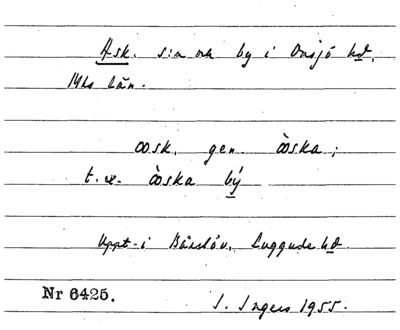 Ask. s:n och by i Onsjö hd,
Mhs län.
ɔosk, gen. ɔ̀oska;
t. ex. ɔ̀oska bý
Uppt. i Bårslöv, Luggude hd.
Nr 6425.
I. Ingers 1955.